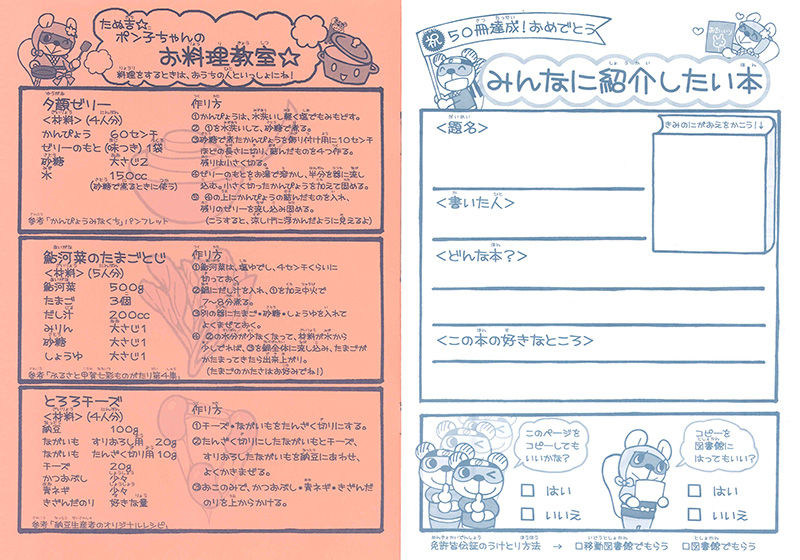 たぬ吉☆
ポン子ちゃんの
お料理教室☆
料理をするときは、おうちの人といっしょにね!
夕顔ゼリー
<材料>(4人分)
かんぴょう 60センチ
ゼリーのもと(味つき)1袋
砂糖 大さじ2
水 150cc
(砂糖で煮るときに使う)
参考「かんぴょうみなくち」パンフレット
作り方
①かんぴょうは、水洗いし軽く塩でもみもどす。
② ①を水洗いして、砂糖で煮る。
③砂糖で煮たかんぴょうを飾り付け用に10センチ
ほどの長さに切り、結んだものを4つ作る。
残りは小さく切る。
④ゼリーのもとをお湯で溶かし、半分を器に流し
込む。小さく切ったかんぴょうを加えて固める。
⑤ ④の上にかんぴょうの結んだものを入れ、
残りのゼリーを流し込み固める。
(こうすると、涼し気に浮かんだように見えるよ)
鮎河菜のたまごとじ
<材料>(5人分)
鮎河菜 500g
たまご 3個
だし汁 200cc
みりん 大さじ1
砂糖 大さじ1
しょうゆ 大さじ1
参考「ふるさと甲賀七彩ものがたり第4章」
作り方
①鮎河菜は、塩ゆでし、4センチくらいに
切っておく
②鍋にだし汁を入れ、①を加え中火で
7~8分煮る。
③別の器にたまご・砂糖・しょうゆを入れて
よくまぜておく。
④ ②の水分が少なくなって、材料が水から
少しでれば、③を鍋全体に流し込み、たまごが
かたまってきたら出来上がり。
(たまごのかたさはお好みでね!)
とろろチーズ
<材料>(4人分)
納豆 100g
ながいも すりおろし用 20g
ながいも たんざく切り用 10g
チーズ 20g
かつおぶし 少々
青ネギ 少々
きざんだのり 好きな量
参考「納豆生産者のオリジナルレシピ」
作り方
①チーズ・ながいもをたんざく切りにする。
②たんざく切りにしたながいもとチーズ、
すりおろしたながいもを納豆にあわせ、
よくかきまぜる。
③おこのみで、かつおぶし・青ネギ・きざんだ
のりを上からかける。
祝
50冊達成!おめでとう
みんなに紹介したい本
<題名>
きみのにがおえをかこう!↓
<書いた人>
<どんな本?>
<この本の好きなところ>
このページを
コピーしても
いいかな?
□ はい
□ いいえ
コピーを
図書館に
はってもいい?
□ はい
□ いいえ
免許皆伝証のうけとり方法 → □移動図書館でもらう □図書館でもらう